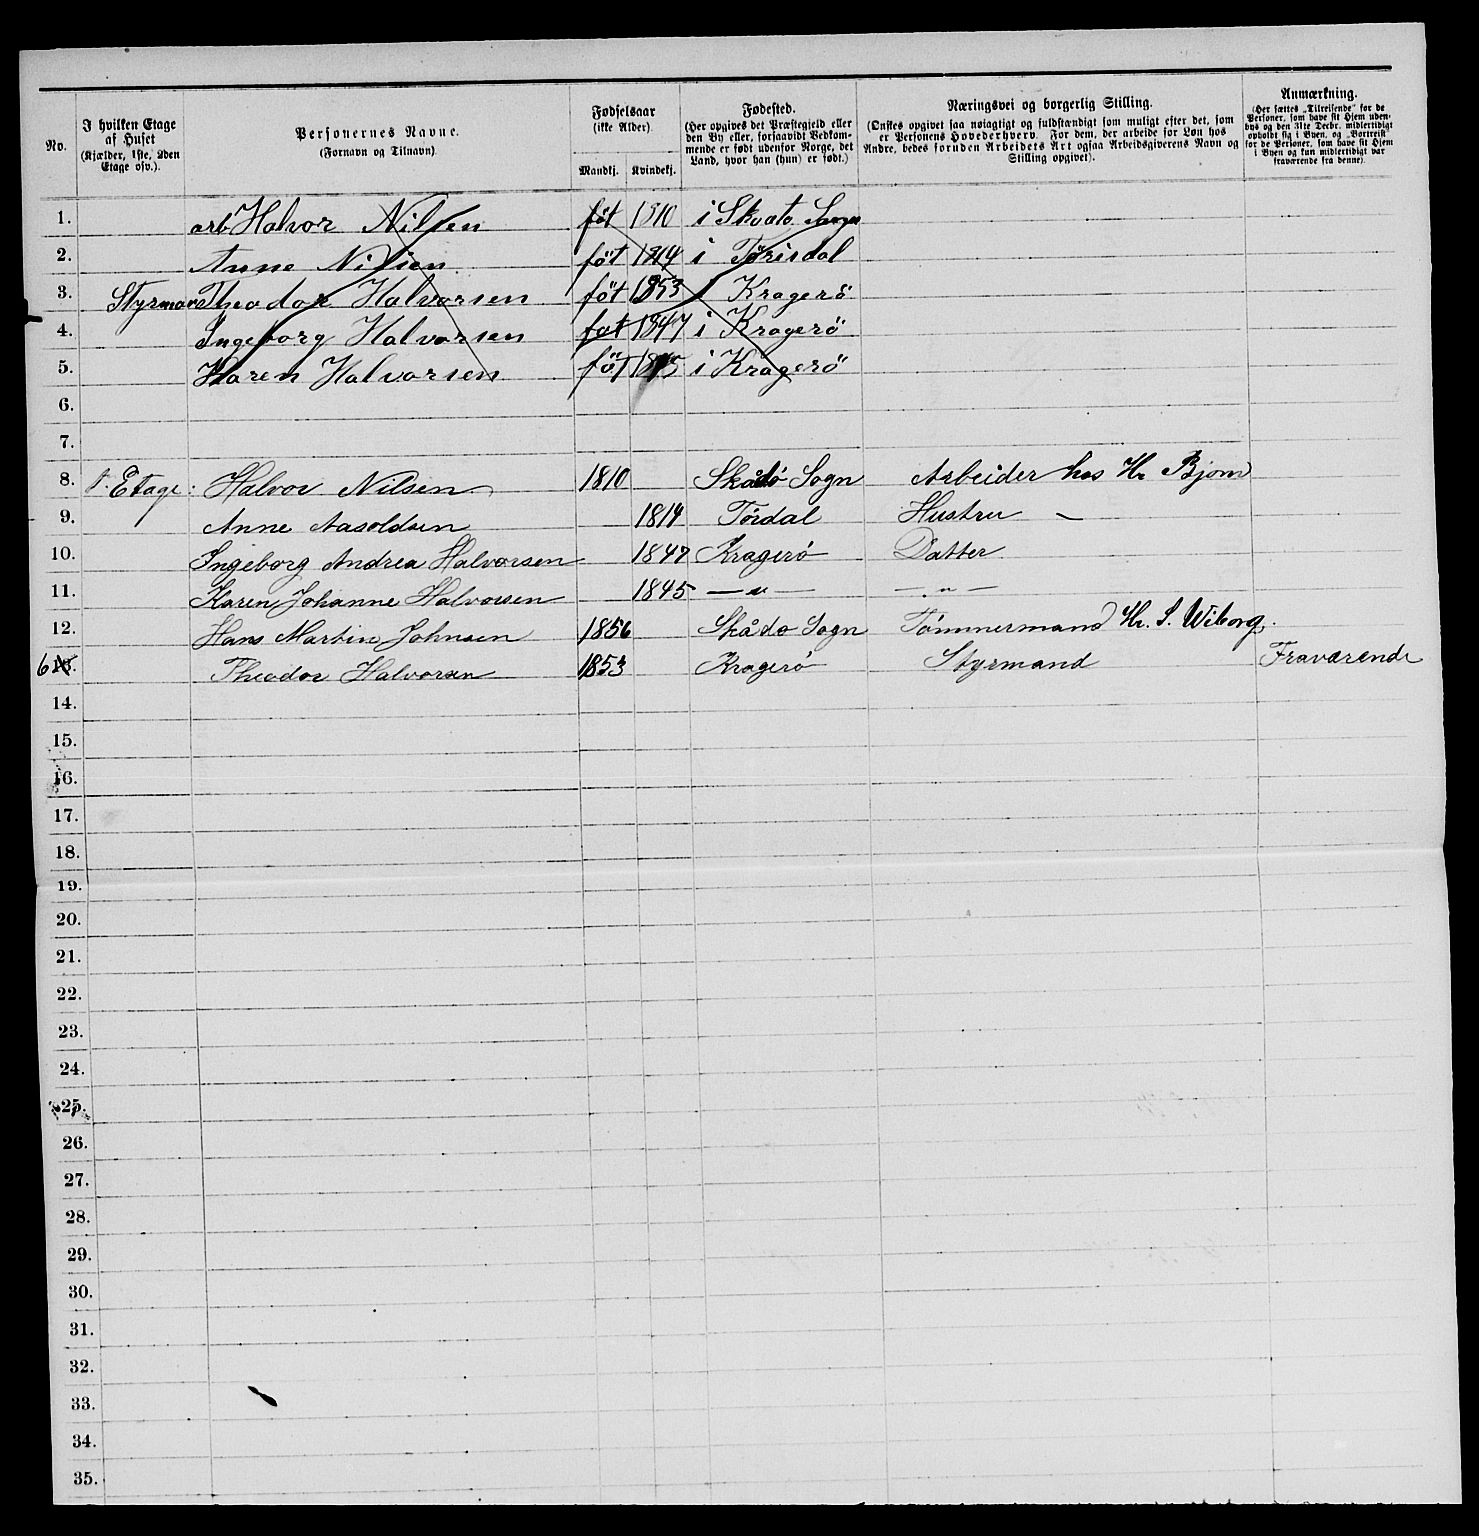 No.
I hvilken Etage
af Huset
(Kjælder, 1ste, 2den
Etage osv.).
Personernes Navne.
(Fornavn og Tilnavn)
Fødselsaar
(ikke Alder)
Mandkj. Kvindekj.
Fødested.
(Her opgives det Præstegjeld eller
den By eller, forsaavidt Vedkom-
mende er født udenfor Norge, det
Land, hvor han (hun) er født.)
Næringsvei og borgerlig Stilling.
(Ønskes opgivet saa nøiagtigt og fuldstændigt som muligt efter det, som
er Personens Hovederhverv. For dem, der arbeide for Løn hos
Andre, bedes foruden Arbeidets Art ogsaa Arbeidsgiverens Navn og
Stilling opgivet).
Anmærkning.
(Her sættes „Tilreisende" for de
Personer, som have sit Hjem uden-
bys og den 31te Decbr. midlertidigt
opholdt sig i Byen, og „Bortreist"
for de Personer, som have sit Hjem
i Byen og kun midlertidigt var
fraværende fra denne).
1. arb Halvor Nilsen föt 1810 i
2. Anne Nilsen föt 1814 i Törisdal
3. Styrman Theodor Halvorsen föt 1853 i Kragerö
4. Ingeborg Halvorsen föt 1847 i Kragerö
5. Karen Halvorsen föt 1845 i Kragerö
6.
7.
8. 1. Etage: Halvor Nilsen 1810 Skådö Sogn Arbeider hos Hr Bjorn
9. Anne Aasoldsen 1814 Tördal Hustru —
10. Ingeborg Andrea Halvorsen 1847 Kragerö Datter
11. Karen Johanne Halvorsen 1845 —〃— —〃—
12. Hans Martin Johnsen 1856 Skådo Sogn Tömmermand Hr. S. Wiborg.
6 13. Theodor Halvorsen 1853 Kragerö Styrmand Fraværende
14.
15.
16.
17.
18.
19.
20.
21.
22.
23.
24.
25.
26.
27.
28.
29.
30.
31.
32.
33.
34.
35.